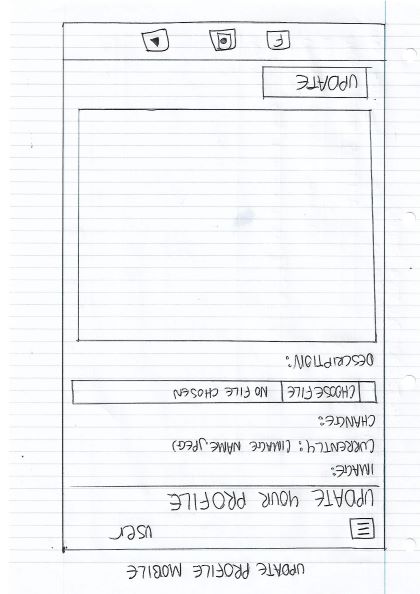 UPDATE PROFILE MOBILE
USER
UPDATE YOUR PROFILE
IMAGE:
CURRENTLY: (IMAGE NAME.JPEG)
CHANGE:
CHOOSE FILE NO FILE CHOSEN
DESCRIPTION:
UPDATE
F